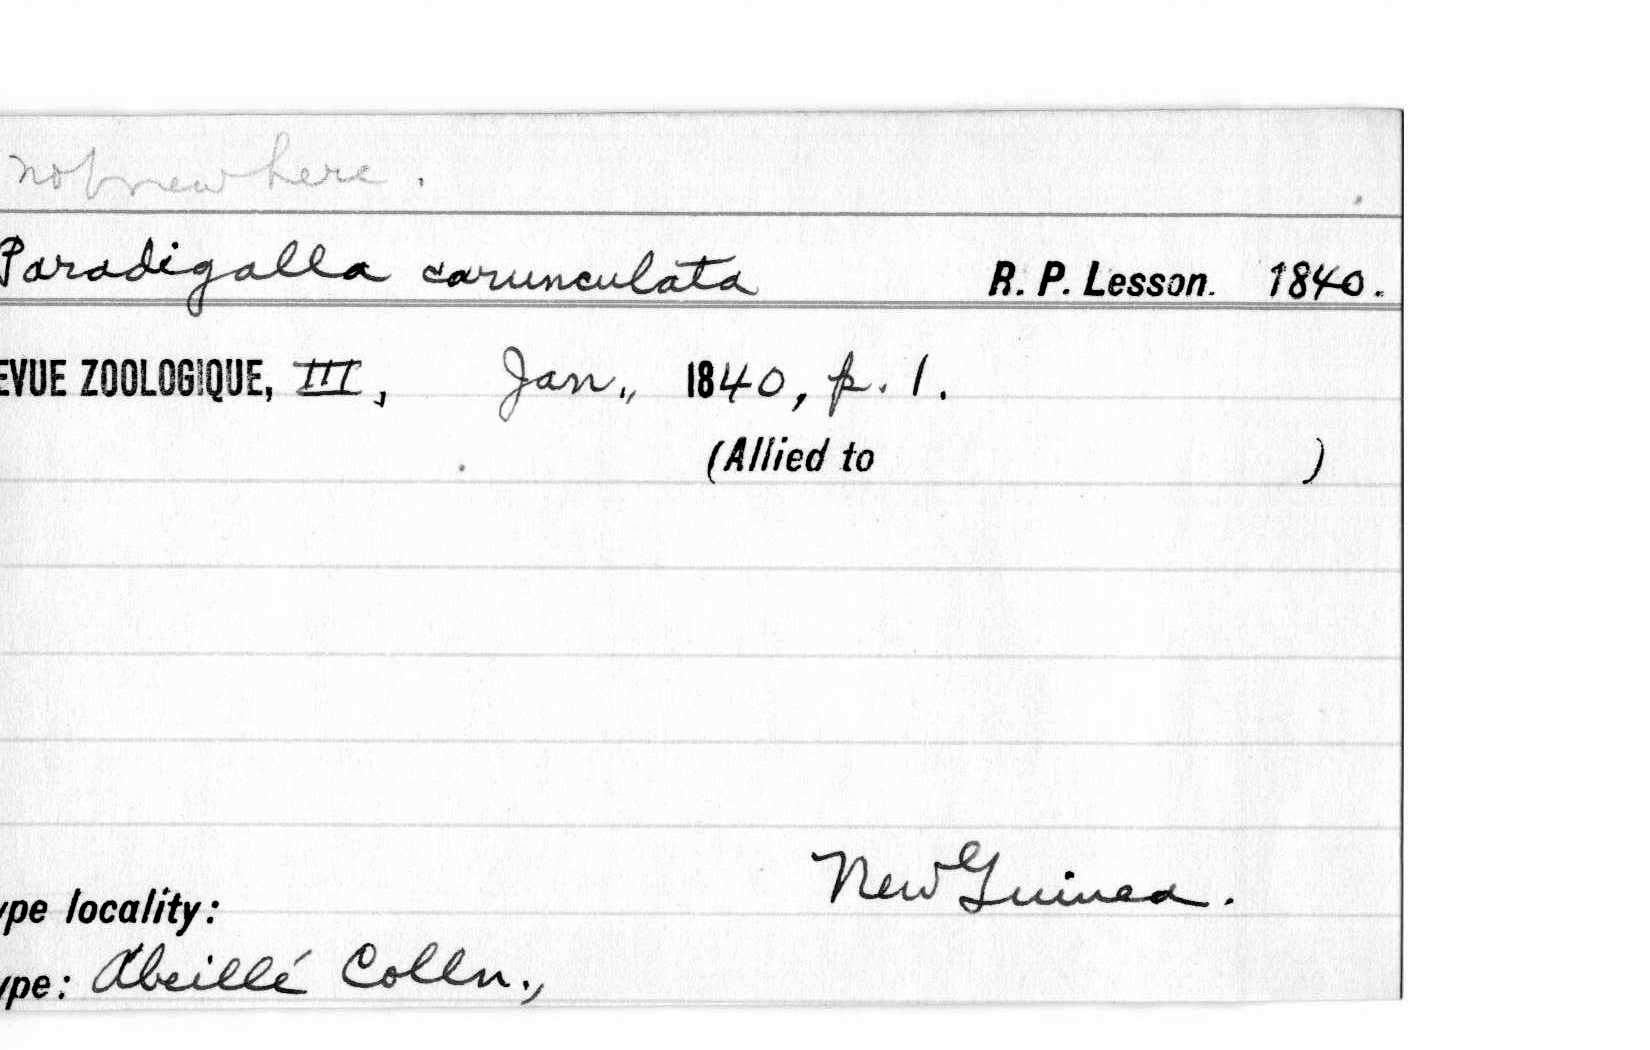 not new here.
Paradigalla carunculata R. P. Lesson. 1840.
EVUE ZOOLOGIQUE, III, Jan., 1840, p. 1.
(Allied to )
New Guinea.
ype locality:
ype: Abeillé Colln.,